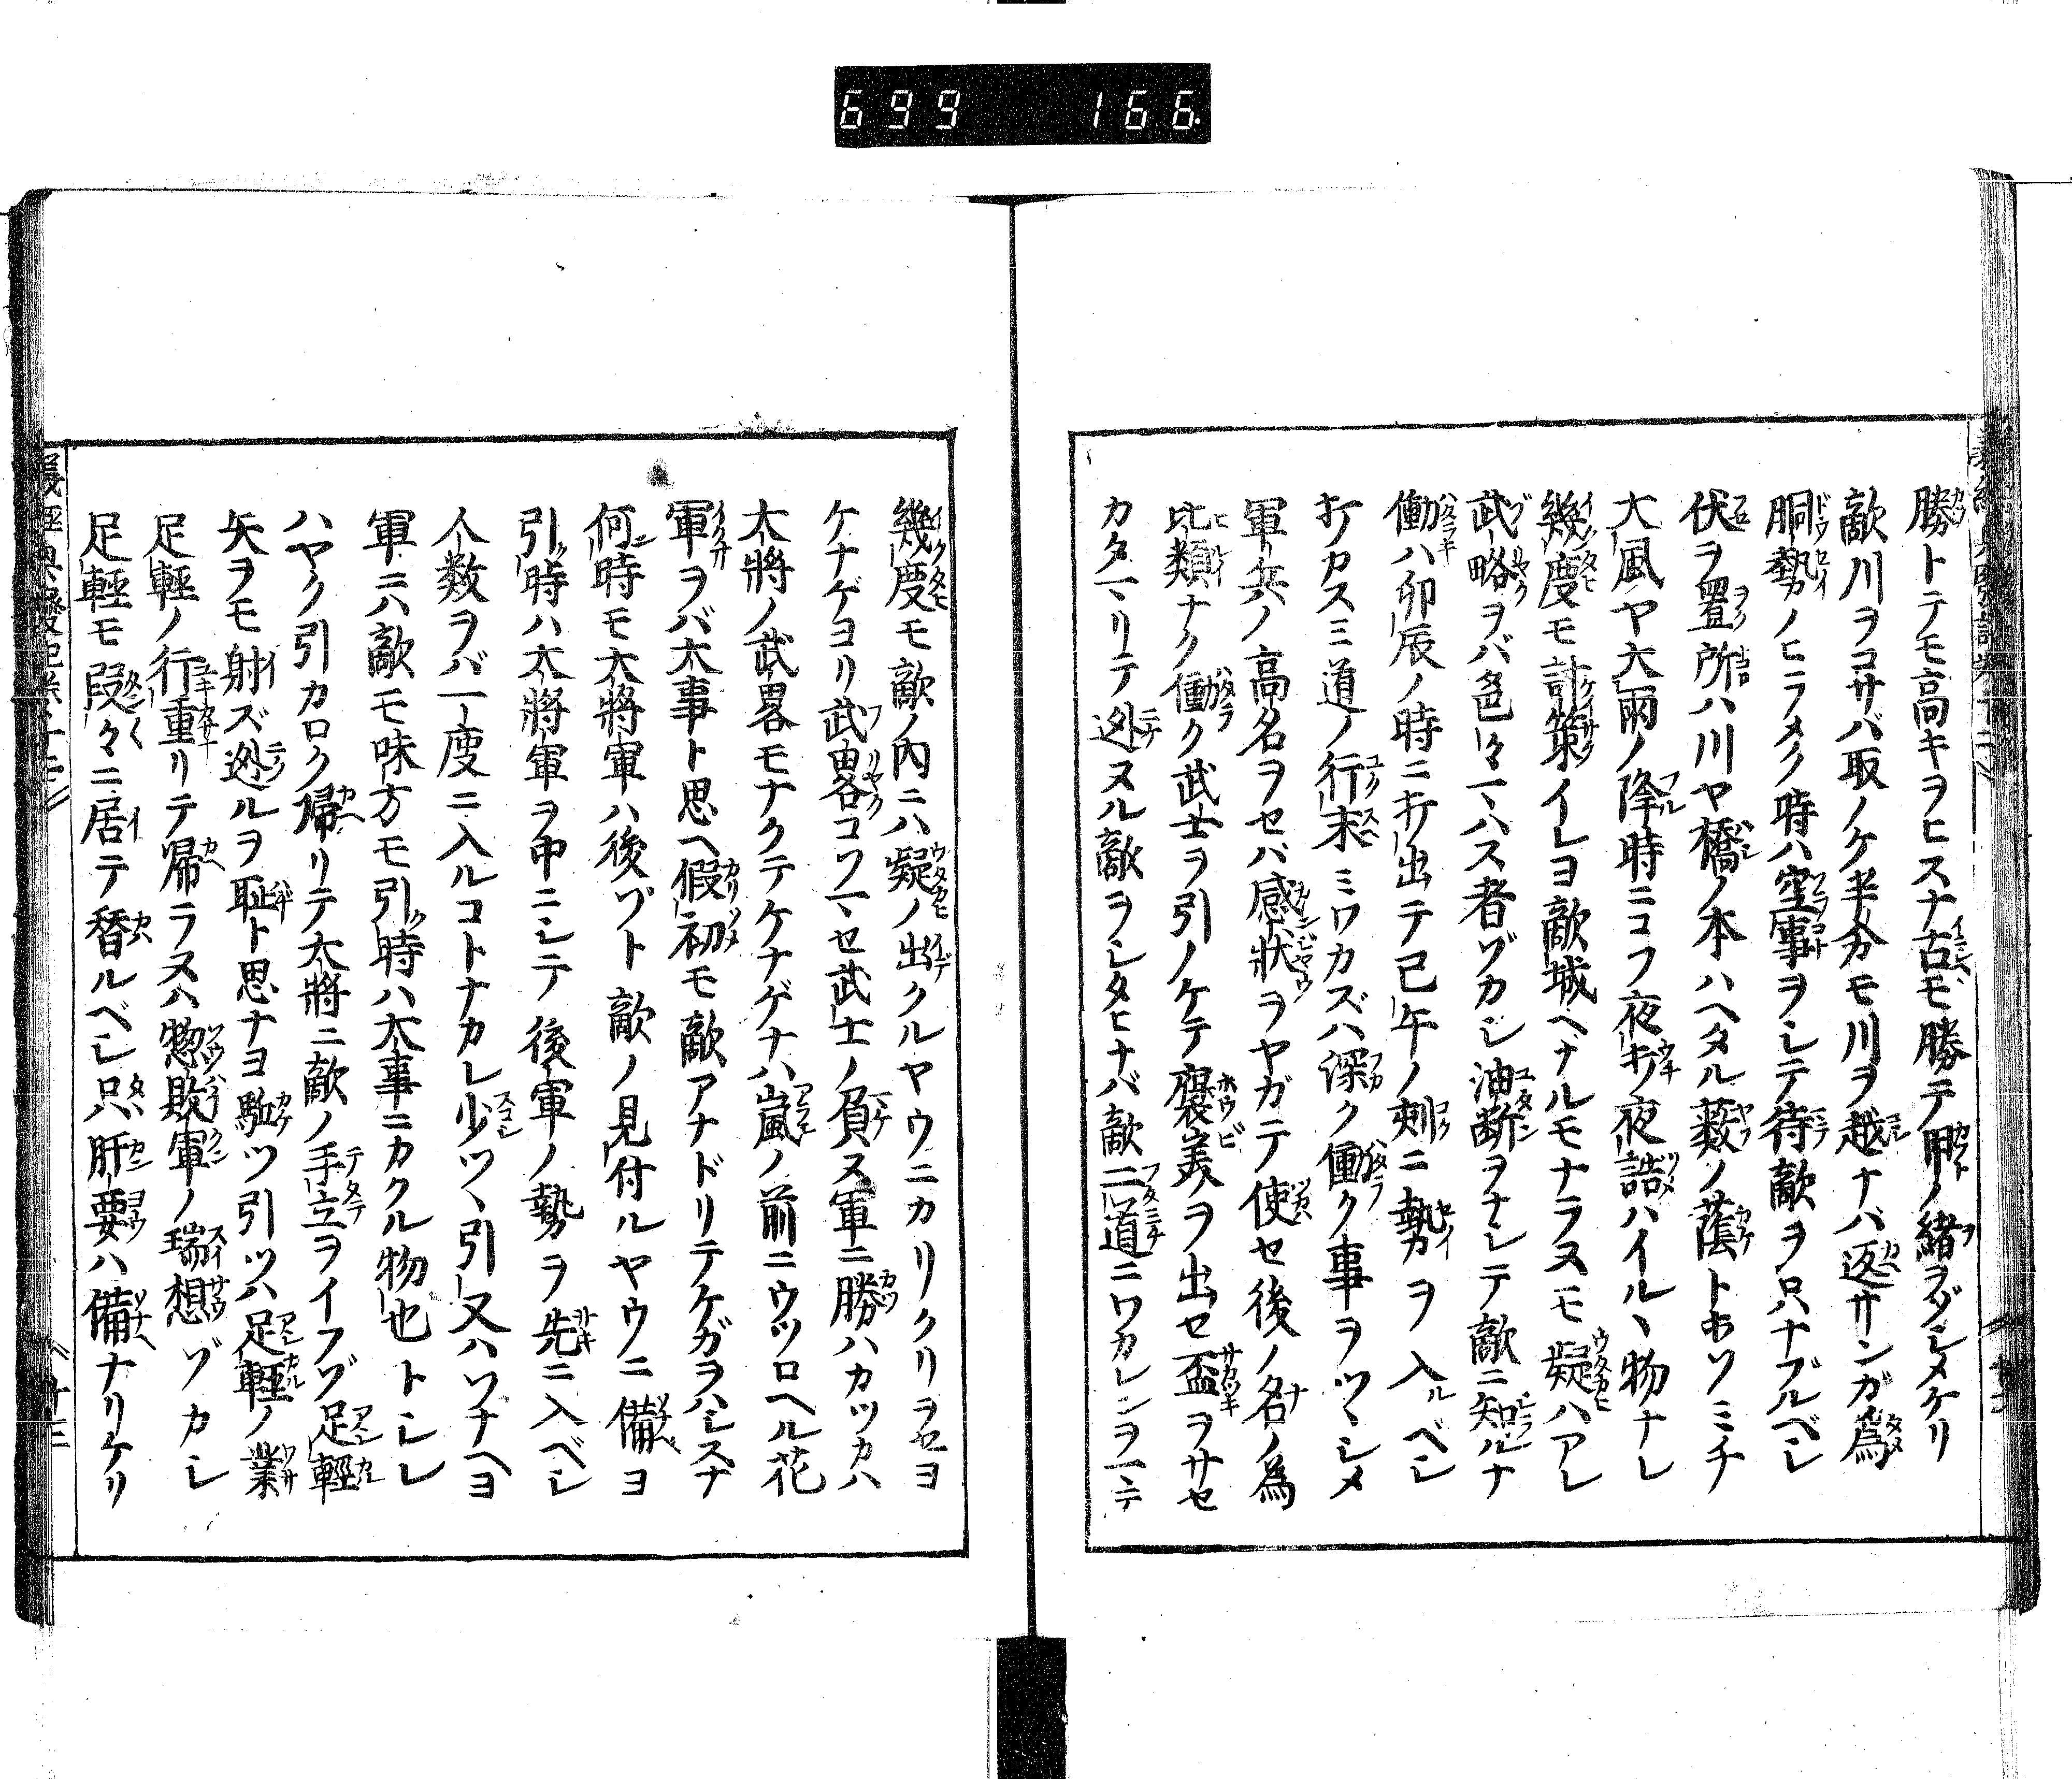 699 166.
勝トテモ高キヲヒスナ古モ勝テ甲ノ緒ヲゾシメケリ
敵川ヲコサバ取ノケ半分モ川ヲ越ナバ返サンガ爲
胴勢ノヒラメク時ハ空事ヲシテ待敵ヲ只ナブルベシ
伏ヲ置所ハ川ヤ橋ノ本ハヘタル薮ノ蔭トホソミチ
大風ヤ大雨ノ降時ニコソ夜打夜詰ハイル丶物ナレ
幾度モ計策イレヨ敵城ヘナルモナラヌモ疑ハアレ
武略ヲバ色々マハス者ゾカシ油断ヲナシテ敵ニ知ルナ
働ハ卯辰ノ時ニ打出テ巳午ノ刻ニ勢ヲ入ルベシ
打カスミ道ノ行末ミワカズハ深ク働ク事ヲツ丶シメ
軍兵ノ高名ヲセバ感狀ヲヤガテ使セ後ノ名ノ為
比類ナク働ク武士ヲ引ノケテ褒美ヲ出セ盃ヲサセ
カタマリテ迯ヌル敵ヲシタヒナバ敵二道ニワカレンヲマテ
幾度モ敵ノ內ニハ疑ノ出クルヤウニカリクリヲセヨ
ケナゲヨリ武畧コソマセ武士ノ負ヌ軍ニ勝ハカツカハ
大將ノ武畧モナクテケナゲナハ嵐ノ前ニウツロヘル花
軍ヲバ大事ト思ヘ假初モ敵アナドリテケガヲバシスナ
何時モ大將軍ハ後ヅト敵ノ見付ルヤウニ備ヨ
引時ハ大將軍ヲ中ニシテ後軍ノ勢ヲ先ニ入ベシ
人数ヲバ一度ニ入ルコトナカレ少ツ丶引又ハソナヘヨ
軍ニハ敵モ味方モ引時ハ大事ニカクル物也トシレ
ハヤク引カロク帰リテ大將ニ敵ノ手立ヲイフゾ足輕
矢ヲモ射ズ迯ルヲ恥ト思ナヨ駈ツ引ツハ足輕ノ業
足輕ノ行重リテ帰ラヌハ惣敗軍ノ瑞想ゾカシ
足輕モ段々ニ居テ替ルベシ只肝要ハ備ナリケリ